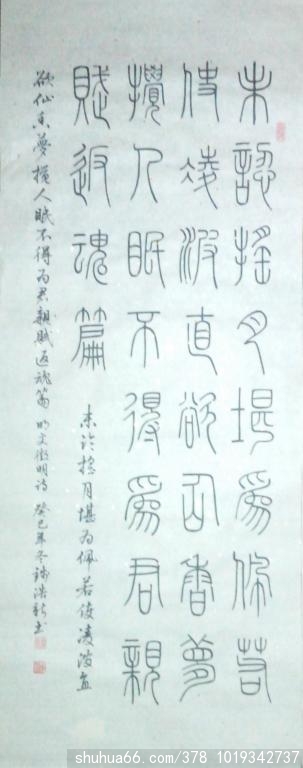 未認搖月堪為佩若
使凌波直欲仙香夢
攪人眠不得為君親
賦返魂篇
未認搖月堪為佩若使凌波直
欲仙香夢攪人眠不得為君親賦返魂篇 明文徵明詩 癸巳年冬 書
shuhua66.com/378 1019342737